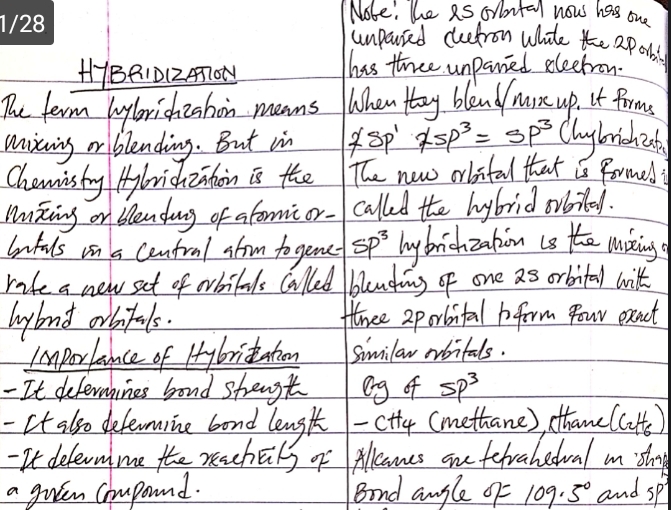 1/28
HYBRIDIZATION
The term hybridization means
mixing or blending. But in
Chemistry Hybridization is the
mixing or blending of atomic or-
bitals in a central atom to gene-
rate a new set of orbitals Called
hybrid orbitals.
Importance of Hybridization
- It determines bond strength
- It also determine bond length
- It determine the reactivity of
a given Compound.
Note: The 2S orbital now has one
unpaired electron While the 2P
has three unpaired electron.
When they blend/mix up, it forms
sp³ = SP³
The new orbital that is formed
called the hybrid orbital.
SP³ hybridization is the mixing
blending of one 2S orbital with
three 2P orbital to form four exact
similar orbitals.
Eg of SP³
- CH4 (methane), ethane (C2H6)
Alkanes are tetrahedral in
Bond angle of 109.5° and